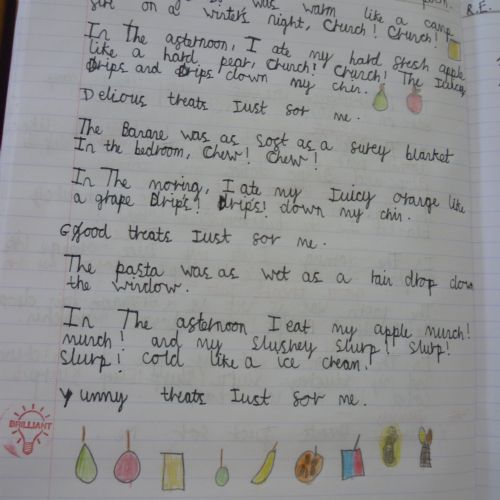 R.E.
sit on a was warm like a camp
winter's night, Crunch! Crunch!
In The asternoon, I ate my hard sresh apple
like a hard pear, Crunch! Crunch! The Juicey
Drips and Drips down my chin.
Delious treats Just sor me.
The Banane was as sost as a surey blanket
In the bedroom, Chew! Chew!
In The moring, I ate my Juicy orange like
a grape Drips! Drips! down my chin.
Goood treats Just sor me.
The pasta was as wet as a rain drop down
the window.
In The asternoon I eat my apple munch!
munch! and my slushey slurp! slurp!
slurp! cold like a ice cream.
Yunny treats Just sor me.
BRILLIANT